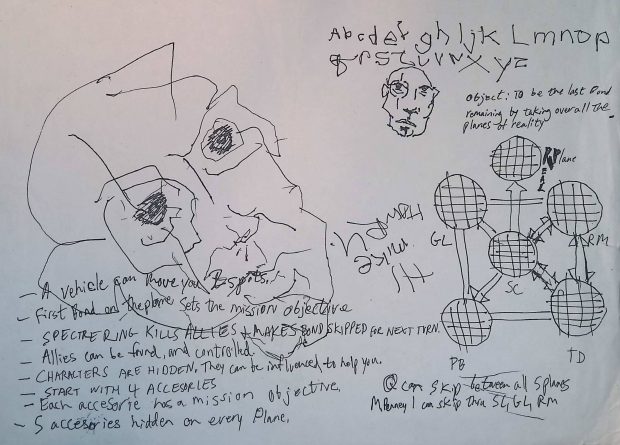 Abcdefghijk Lmnop
qrstuvwxyz
object: To be the last Bond
remaining by taking over all the
planes of reality
REAL Plane
GL
RM
SC
PB
TD
Hi
mike
- A vehicle can move you 2 spots.
- First Bond on the plane sets the mission objective
- SPECTRE RING KILLS ALLIES + MAKES BOND SKIPPED FOR NEXT TURN.
- Allies can be found, and controlled
- CHARACTERS ARE HIDDEN, They can be influenced to help you.
- START WITH 4 ACCESORIES
- Each accesorie has a mission objective.
- 5 accesories hidden on every Plane.
Q can skip between all 5 planes
M Penney I can skip thru SC, GL, RM